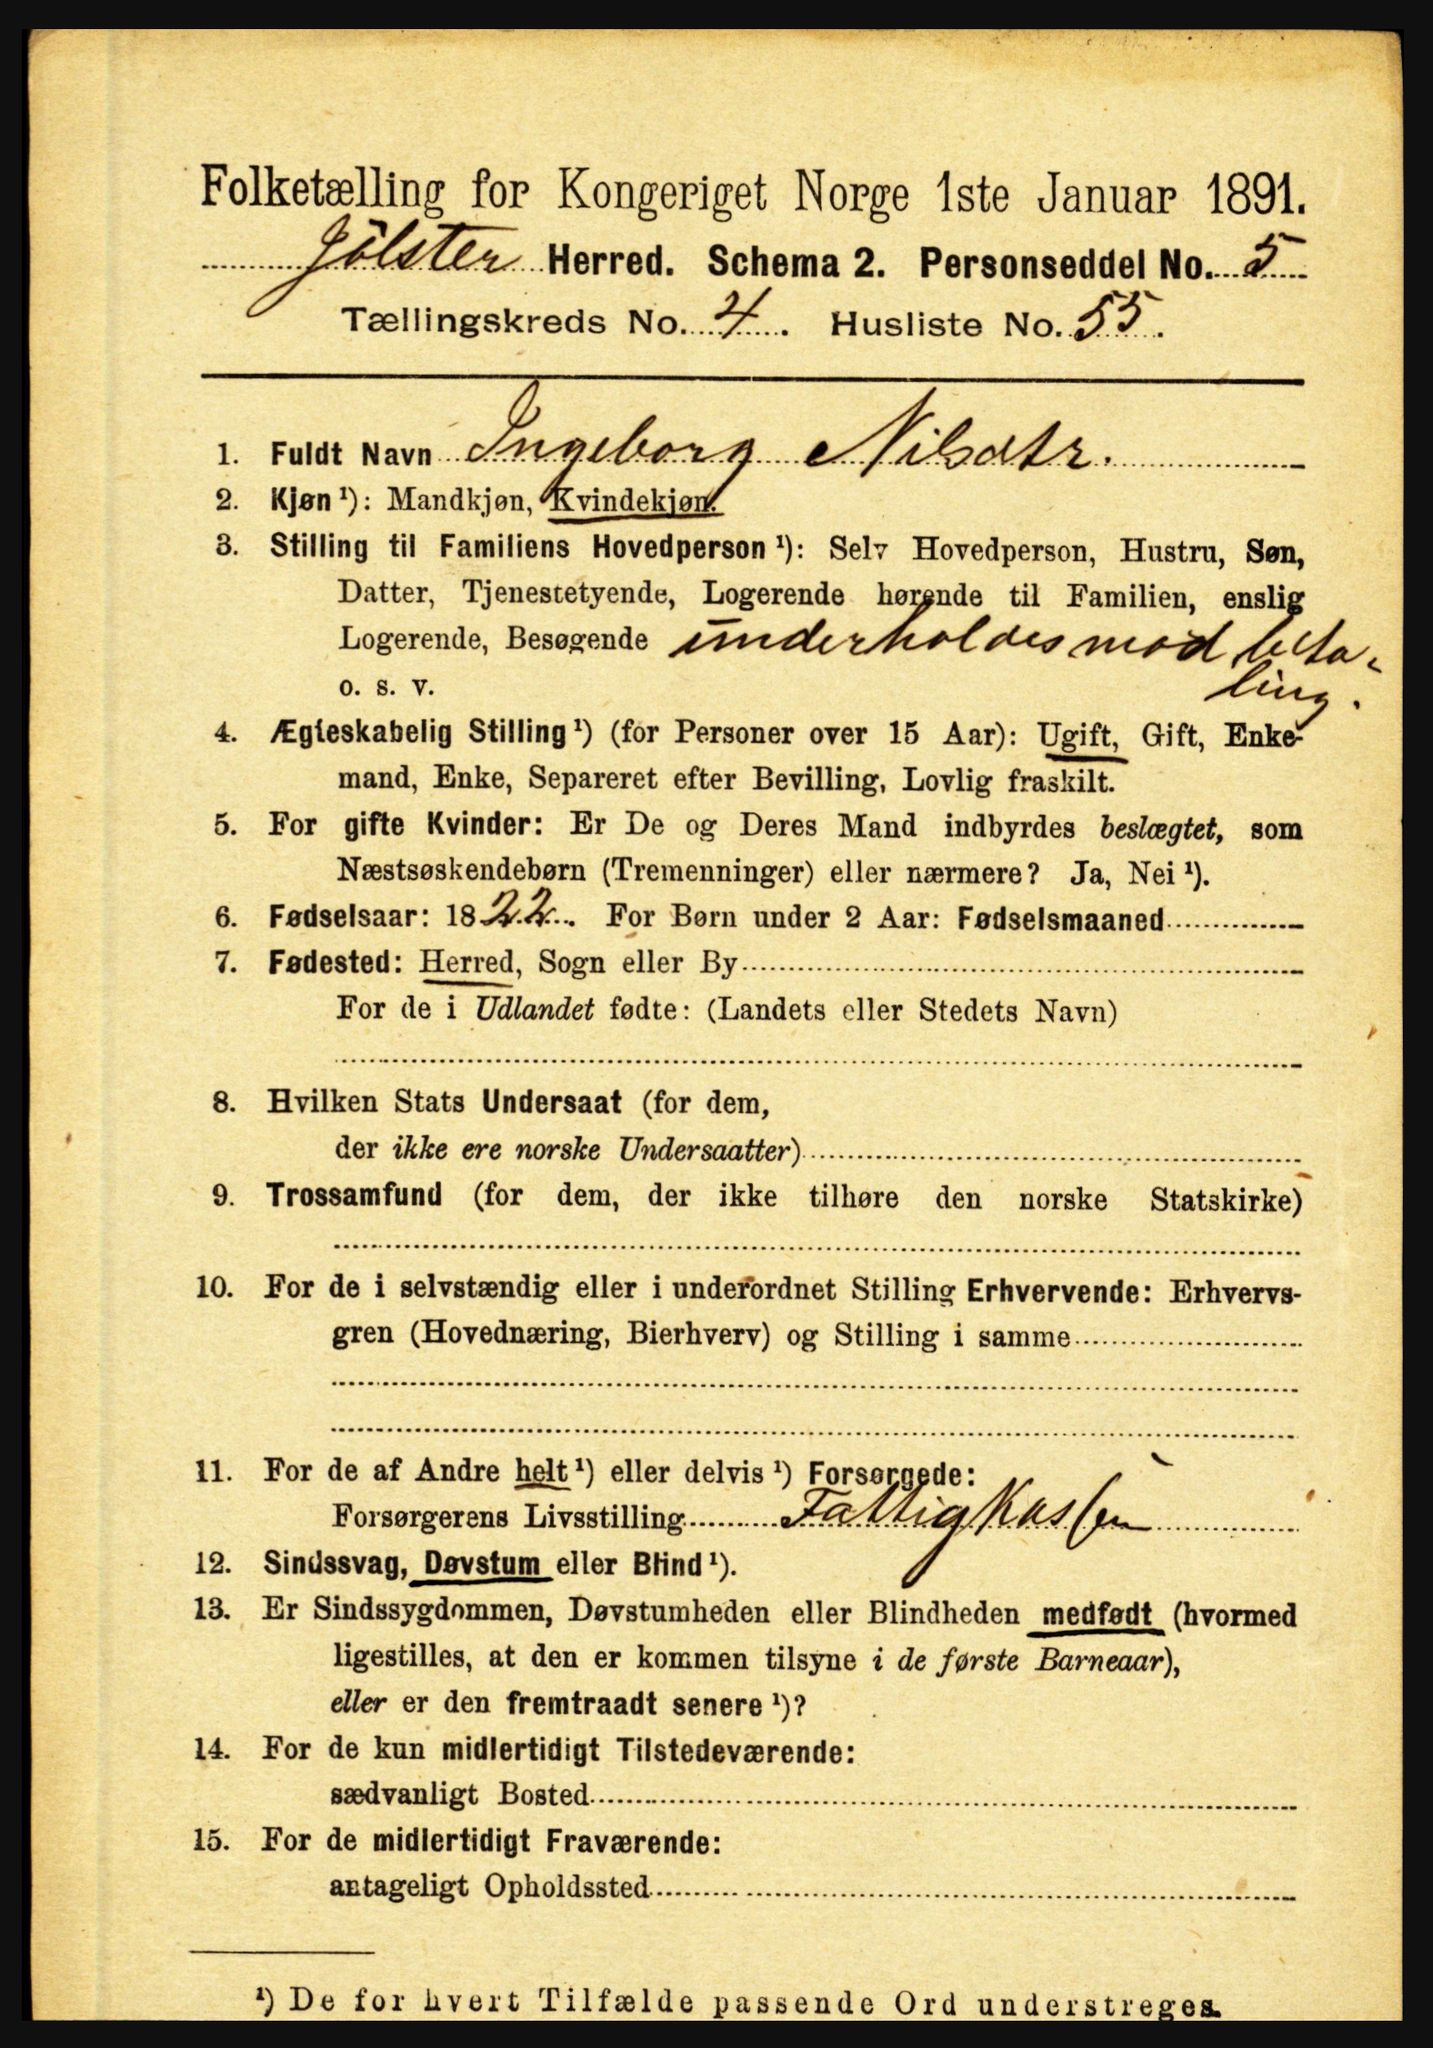 Folketælling for Kongeriget Norge 1ste Januar 1891.
Jölster Herred. Schema 2. Personseddel No. 5
Tællingskreds No. 4. Husliste No. 55.
1. Fuldt Navn Ingeborg Nilsdtr.
2. Kjøn ¹): Mandkjøn, Kvindekjøn.
3. Stilling til Familiens Hovedperson ¹): Selv Hovedperson, Hustru, Søn,
Datter, Tjenestetyende, Logerende hørende til Familien, enslig
Logerende, Besøgende underholdes mod beta-
o. s. v. ling.
4. Ægteskabelig Stilling ¹) (for Personer over 15 Aar): Ugift, Gift, Enke-
mand, Enke, Separeret efter Bevilling, Lovlig fraskilt.
5. For gifte Kvinder: Er De og Deres Mand indbyrdes beslægtet, som
Næstsøskendebørn (Tremenninger) eller nærmere? Ja, Nei ¹).
6. Fødselsaar: 1822. For Børn under 2 Aar: Fødselsmaaned
7. Fødested: Herred, Sogn eller By
For de i Udlandet fødte: (Landets eller Stedets Navn)
8. Hvilken Stats Undersaat (for dem,
der ikke ere norske Undersaatter)
9. Trossamfund (for dem, der ikke tilhøre den norske Statskirke)
10. For de i selvstændig eller i underordnet Stilling Erhvervende: Erhvervs-
gren (Hovednæring, Bierhverv) og Stilling i samme
11. For de af Andre helt ¹) eller delvis ¹) Forsørgede:
Forsørgerens Livsstilling Fattigkassen
12. Sindssvag, Døvstum eller Blind ¹).
13. Er Sindssygdommen, Døvstumheden eller Blindheden medfødt (hvormed
ligestilles, at den er kommen tilsyne i de første Barneaar),
eller er den fremtraadt senere ¹)?
14. For de kun midlertidigt Tilstedeværende:
sædvanligt Bosted
15. For de midlertidigt Fraværende:
antageligt Opholdssted
¹) De for hvert Tilfælde passende Ord understreges.